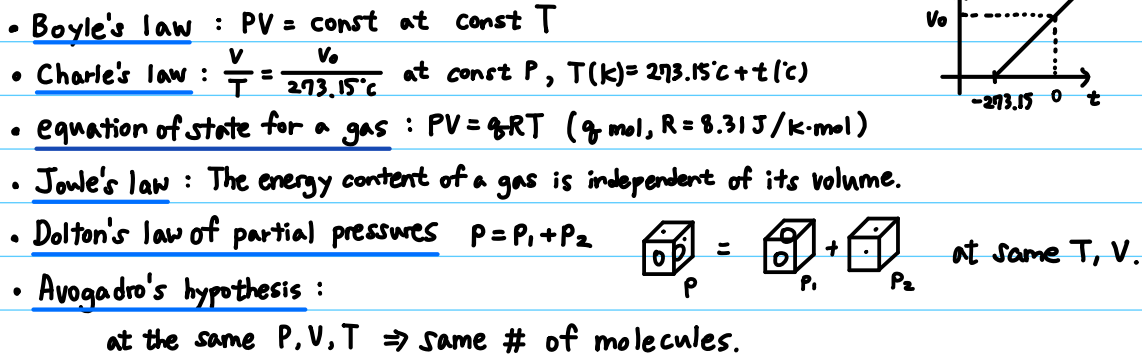 • Boyle's law : PV = const at const T
V₀
• Charle's law : V/T = V₀/273.15°C at const P, T(K)= 273.15°C + t(°C)
-273.15 0 t
• equation of state for a gas : PV = qRT (q mol, R = 8.31 J/K·mol)
• Joule's law : The energy content of a gas is independent of its volume.
• Dolton's law of partial pressures P = P₁ + P₂ = + at same T, V.
P P₁ P₂
• Avogadro's hypothesis :
at the same P, V, T ⇒ same # of molecules.